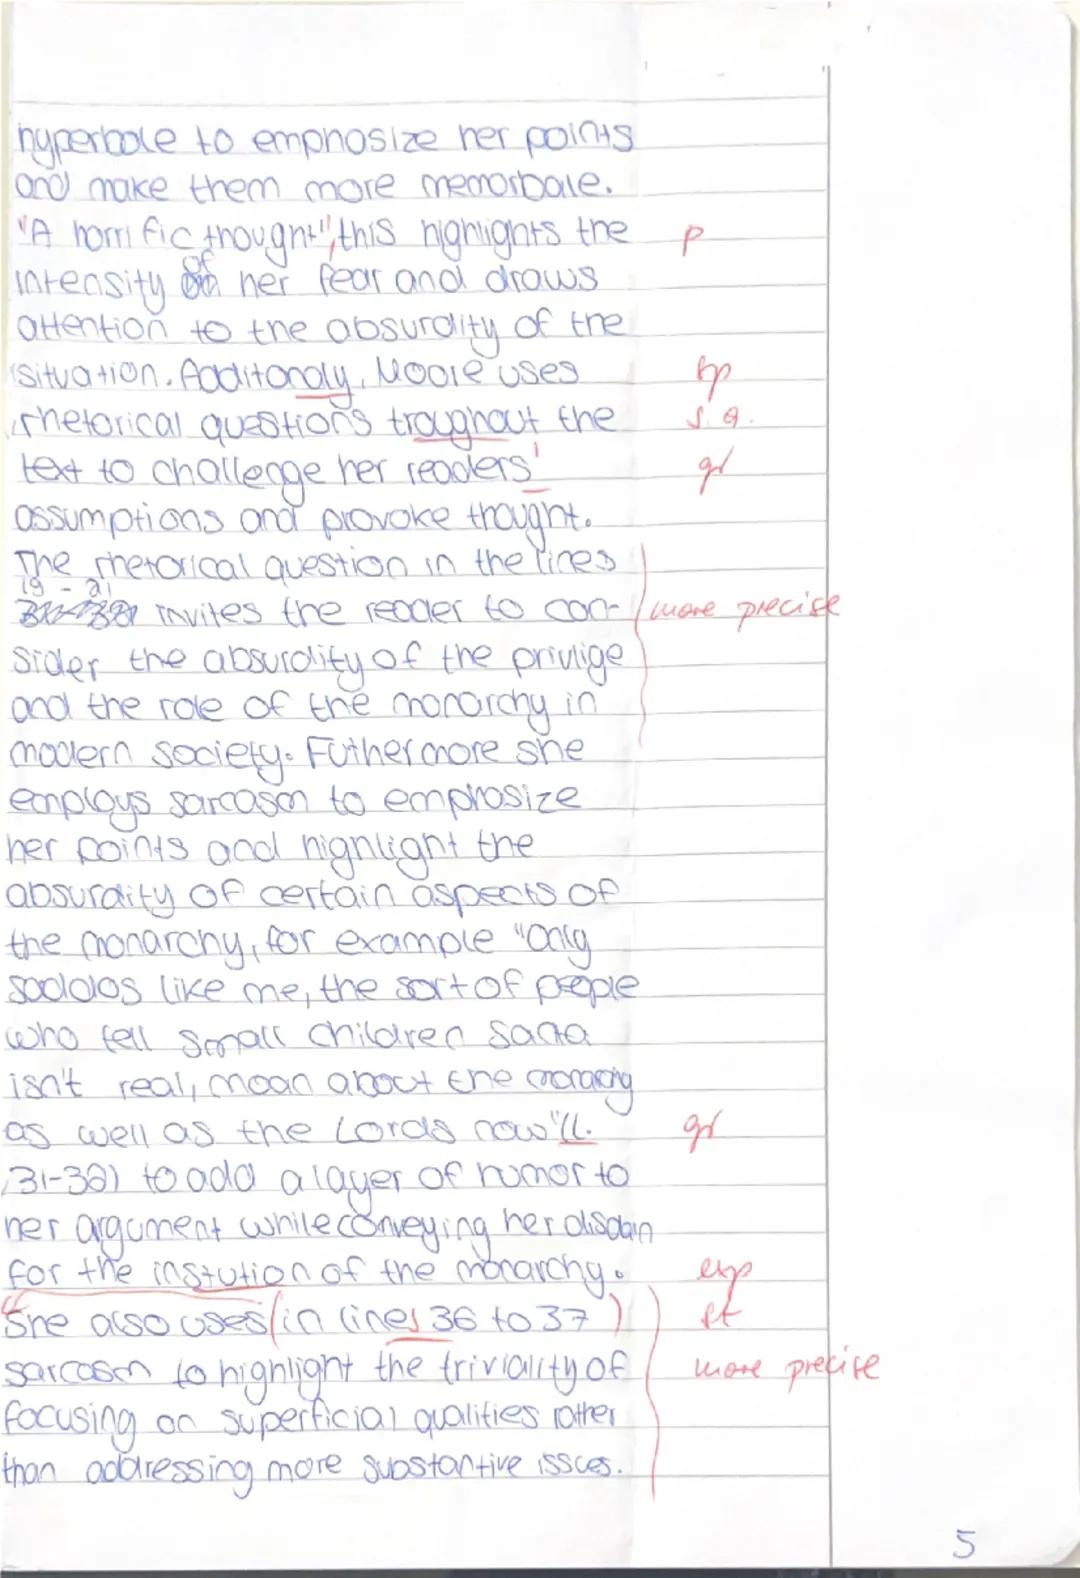 hyperbole to emphosize her points
and make them more memorbale.
"A horrific thought", this highlights the p
intensity of her fear and draws
attention to the absurdity of the
situation. Additonaly, Moore uses sp
rhetorical questions troughout the s. a.
text to challenge her readers' gr
assumptions and provoke thought.
The rhetorical question in the lines
19 - 21
invites the reader to con- more precise
sider the absurdity of the privlige
and the role of the monarchy in
modern society. Futhermore she
employs sarcasm to emphosize
her points and highlight the
absurdity of certain aspects of
the monarchy, for example "Only
saddos like me, the sort of people
who tell small children Santa
isn't real, moan about the monarchy
as well as the Lords now" ll. gr
31-32) to add a layer of humor to
her argument while conveying her disdain
for the instution of the monarchy. exp
She also uses (in lines 36 to 37) st
sarcasm to highlight the triviality of more precise
focusing on superficial qualities rather
than addressing more substantive issues.
5